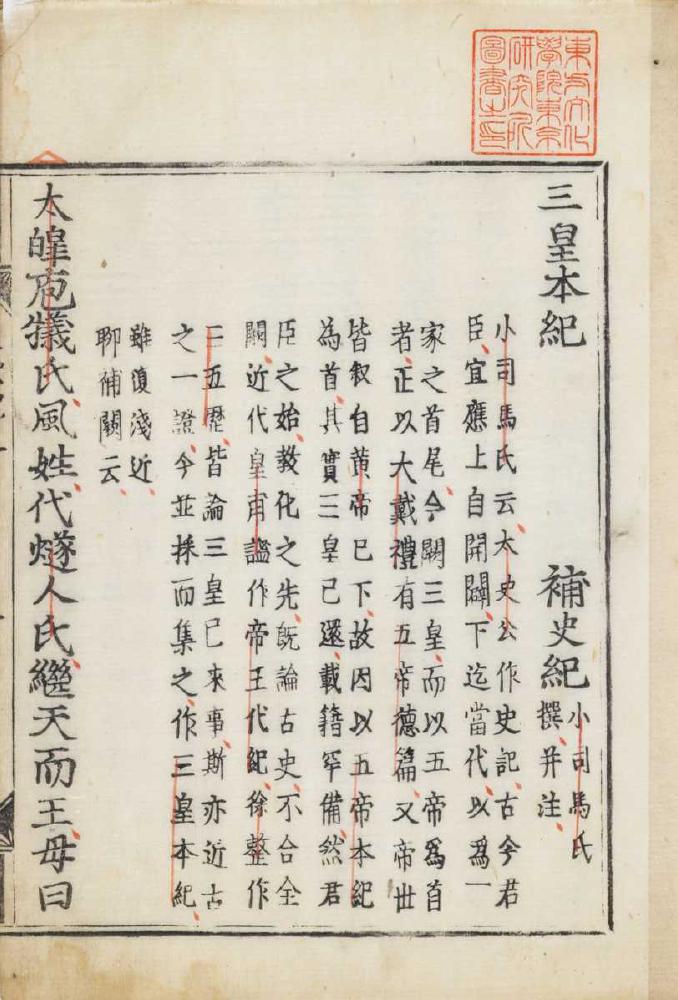 東方文化
學院東京
研究所
圖書之印
三皇本紀 補史紀 小司馬氏
撰并注
小司馬氏云太史公作史記古今君
臣宜應上自開闢下迄當代以爲一
家之首尾今闕三皇而以五帝爲首
者正以大戴禮有五帝德篇又帝世
皆叙自黃帝已下故因以五帝本紀
為首其實三皇已還載籍罕備然君
臣之始教化之先既論古史不合全
闕近代皇甫謐作帝王代紀徐整作
三五歷皆論三皇已來事斯亦近古
之一證今並採而集之作三皇本紀
雖復淺近
聊補闕云
太皞庖犧氏風姓代燧人氏繼天而王母曰